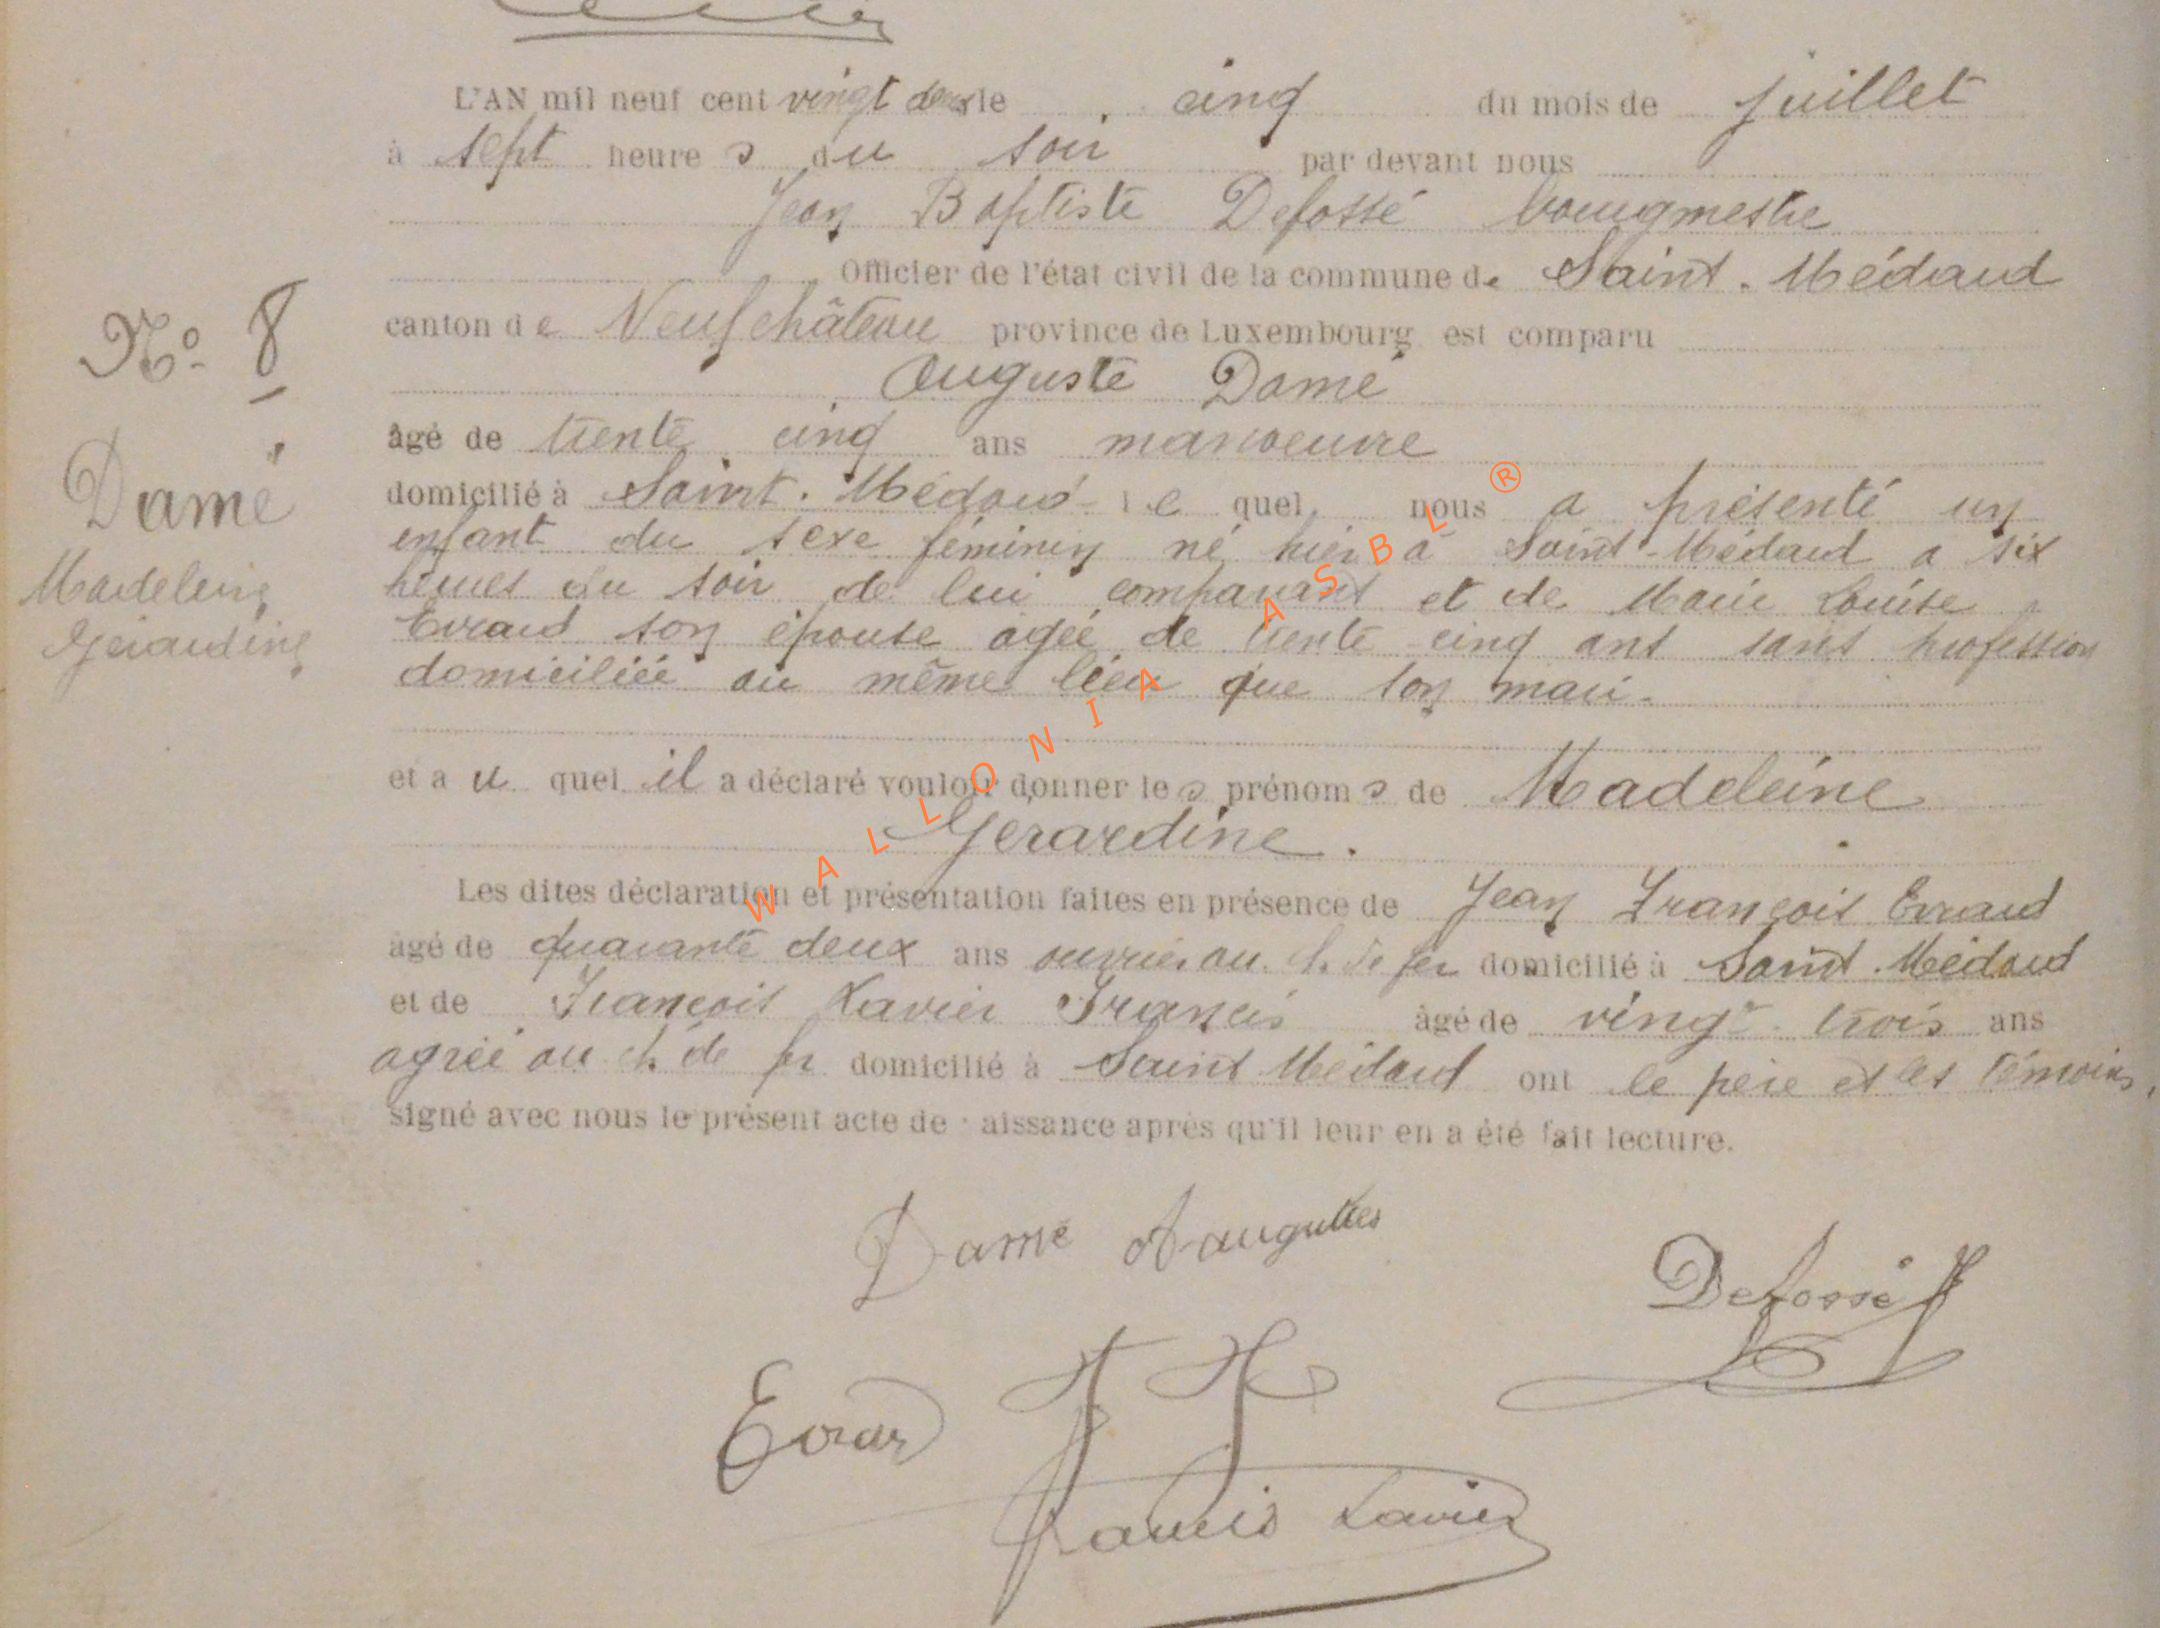 L'AN mil neuf cent vingt deux le cinq du mois de juillet
à sept heures du soir par devant nous
Jean Baptiste Defossé bourgmestre
Officier de l'état civil de la commune de Saint-Médard
canton de Neufchâteau province de Luxembourg est comparu
Auguste Damé
âgé de trente cinq ans manoeuvre
domicilié à Saint-Médard lequel nous a présenté un
enfant du sexe féminin né hier à Saint-Médard a six
heures du soir de lui comparant et de Marie Louise
Evrard son épouse agée de trente cinq ans sans profession
domiciliée au même lieu que son mari.
et au quel il a déclaré vouloir donner les prénoms de Madeleine
Gérardine.
Les dites déclaration et présentation faites en présence de Jean François Evrard
âgé de quarante deux ans ouvrier au ch. de fer domicilié à Saint-Médard
et de François Xavier Francis âgé de vingt trois ans
agréé au ch. de fer domicilié à Saint Médard ont le père et les témoins,
signé avec nous le présent acte de naissance après qu'il leur en a été fait lecture.
N° 8
Damé
Madeleine
Gérardine
Damé
Defossé J
Evrard J F
Francis Xavier
WALLONIA ASBL ®